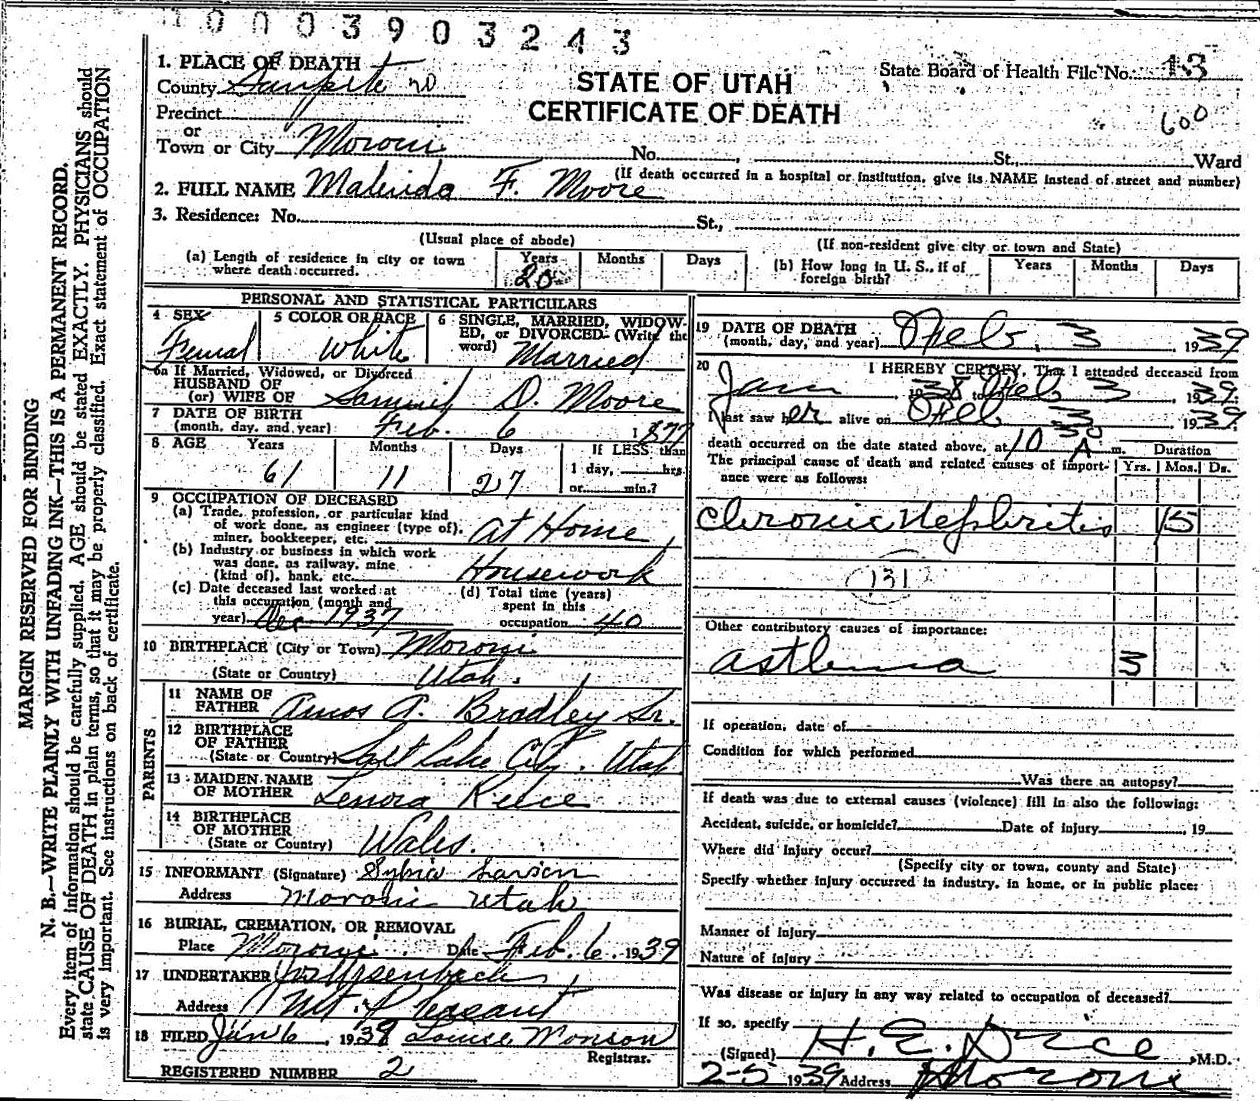 10003903243
MARGIN RESERVED FOR BINDING
N. B.—WRITE PLAINLY WITH UNFADING INK—THIS IS A PERMANENT RECORD.
Every item of information should be carefully supplied. AGE should be stated EXACTLY. PHYSICIANS should
state CAUSE OF DEATH in plain terms, so that it may be properly classified. Exact statement of OCCUPATION
is very important. See instructions on back of certificate.
STATE OF UTAH
CERTIFICATE OF DEATH
State Board of Health File No. 13
600
1. PLACE OF DEATH
County Sanpete
Precinct
or
Town or City Moroni No. , St., Ward
(If death occurred in a hospital or institution, give its NAME instead of street and number)
2. FULL NAME Malinda F. Moore
3. Residence: No. St.,
(Usual place of abode) (If non-resident give city or town and State)
(a) Length of residence in city or town where death occurred. Years 20 Months Days
(b) How long in U. S., if of foreign birth? Years Months Days
PERSONAL AND STATISTICAL PARTICULARS
4 SEX Femal 5 COLOR OR RACE White 6 SINGLE, MARRIED, WIDOWED, or DIVORCED (Write the word) Married
6a If Married, Widowed, or Divorced
HUSBAND OF
(or) WIFE OF Samuel D. Moore
7 DATE OF BIRTH
(month, day, and year) Feb. 6 1877
8 AGE Years 61 Months 11 Days 27 If LESS than 1 day, hrs. or min.?
9 OCCUPATION OF DECEASED
(a) Trade, profession, or particular kind
of work done, as engineer (type of),
miner, bookkeeper, etc. At Home
(b) Industry or business in which work
was done, as railway, mine
(kind of), bank, etc. Housework
(c) Date deceased last worked at
this occupation (month and
year) Dec 1937
(d) Total time (years)
spent in this
occupation 40
10 BIRTHPLACE (City or Town) Moroni
(State or Country) Utah.
PARENTS
11 NAME OF
FATHER Amos A. Bradley Sr.
12 BIRTHPLACE
OF FATHER
(State or Country) Salt Lake City. Utah
13 MAIDEN NAME
OF MOTHER Lenora Reece
14 BIRTHPLACE
OF MOTHER
(State or Country) Wales.
15 INFORMANT (Signature) Sylvia Larson
Address Moroni Utah
16 BURIAL, CREMATION, OR REMOVAL
Place Moroni Date Feb. 6. 1939
17 UNDERTAKER
Address Mt. Pleasant
18 FILED Jun 6, 1939 Louise Monson
Registrar.
REGISTERED NUMBER 2
19 DATE OF DEATH
(month, day, and year) Feb. 3 1939
20 I HEREBY CERTIFY, That I attended deceased from
Jan 1938 to Feb 3 1939.
I last saw her alive on Feb 3 1939
death occurred on the date stated above, at 10 30 A m.
Duration
The principal cause of death and related causes of importance were as follows: Yrs. Mos. Ds.
Chronic Nephritis 15
131
Other contributory causes of importance:
Asthma 3
If operation, date of
Condition for which performed
Was there an autopsy?
If death was due to external causes (violence) fill in also the following:
Accident, suicide, or homicide? Date of injury , 19
Where did injury occur?
(Specify city or town, county and State)
Specify whether injury occurred in industry, in home, or in public place:
Manner of Injury
Nature of Injury
Was disease or injury in any way related to occupation of deceased?
If so, specify
(Signed) H. E. Dice , M.D.
2-5 1939 Address Moroni